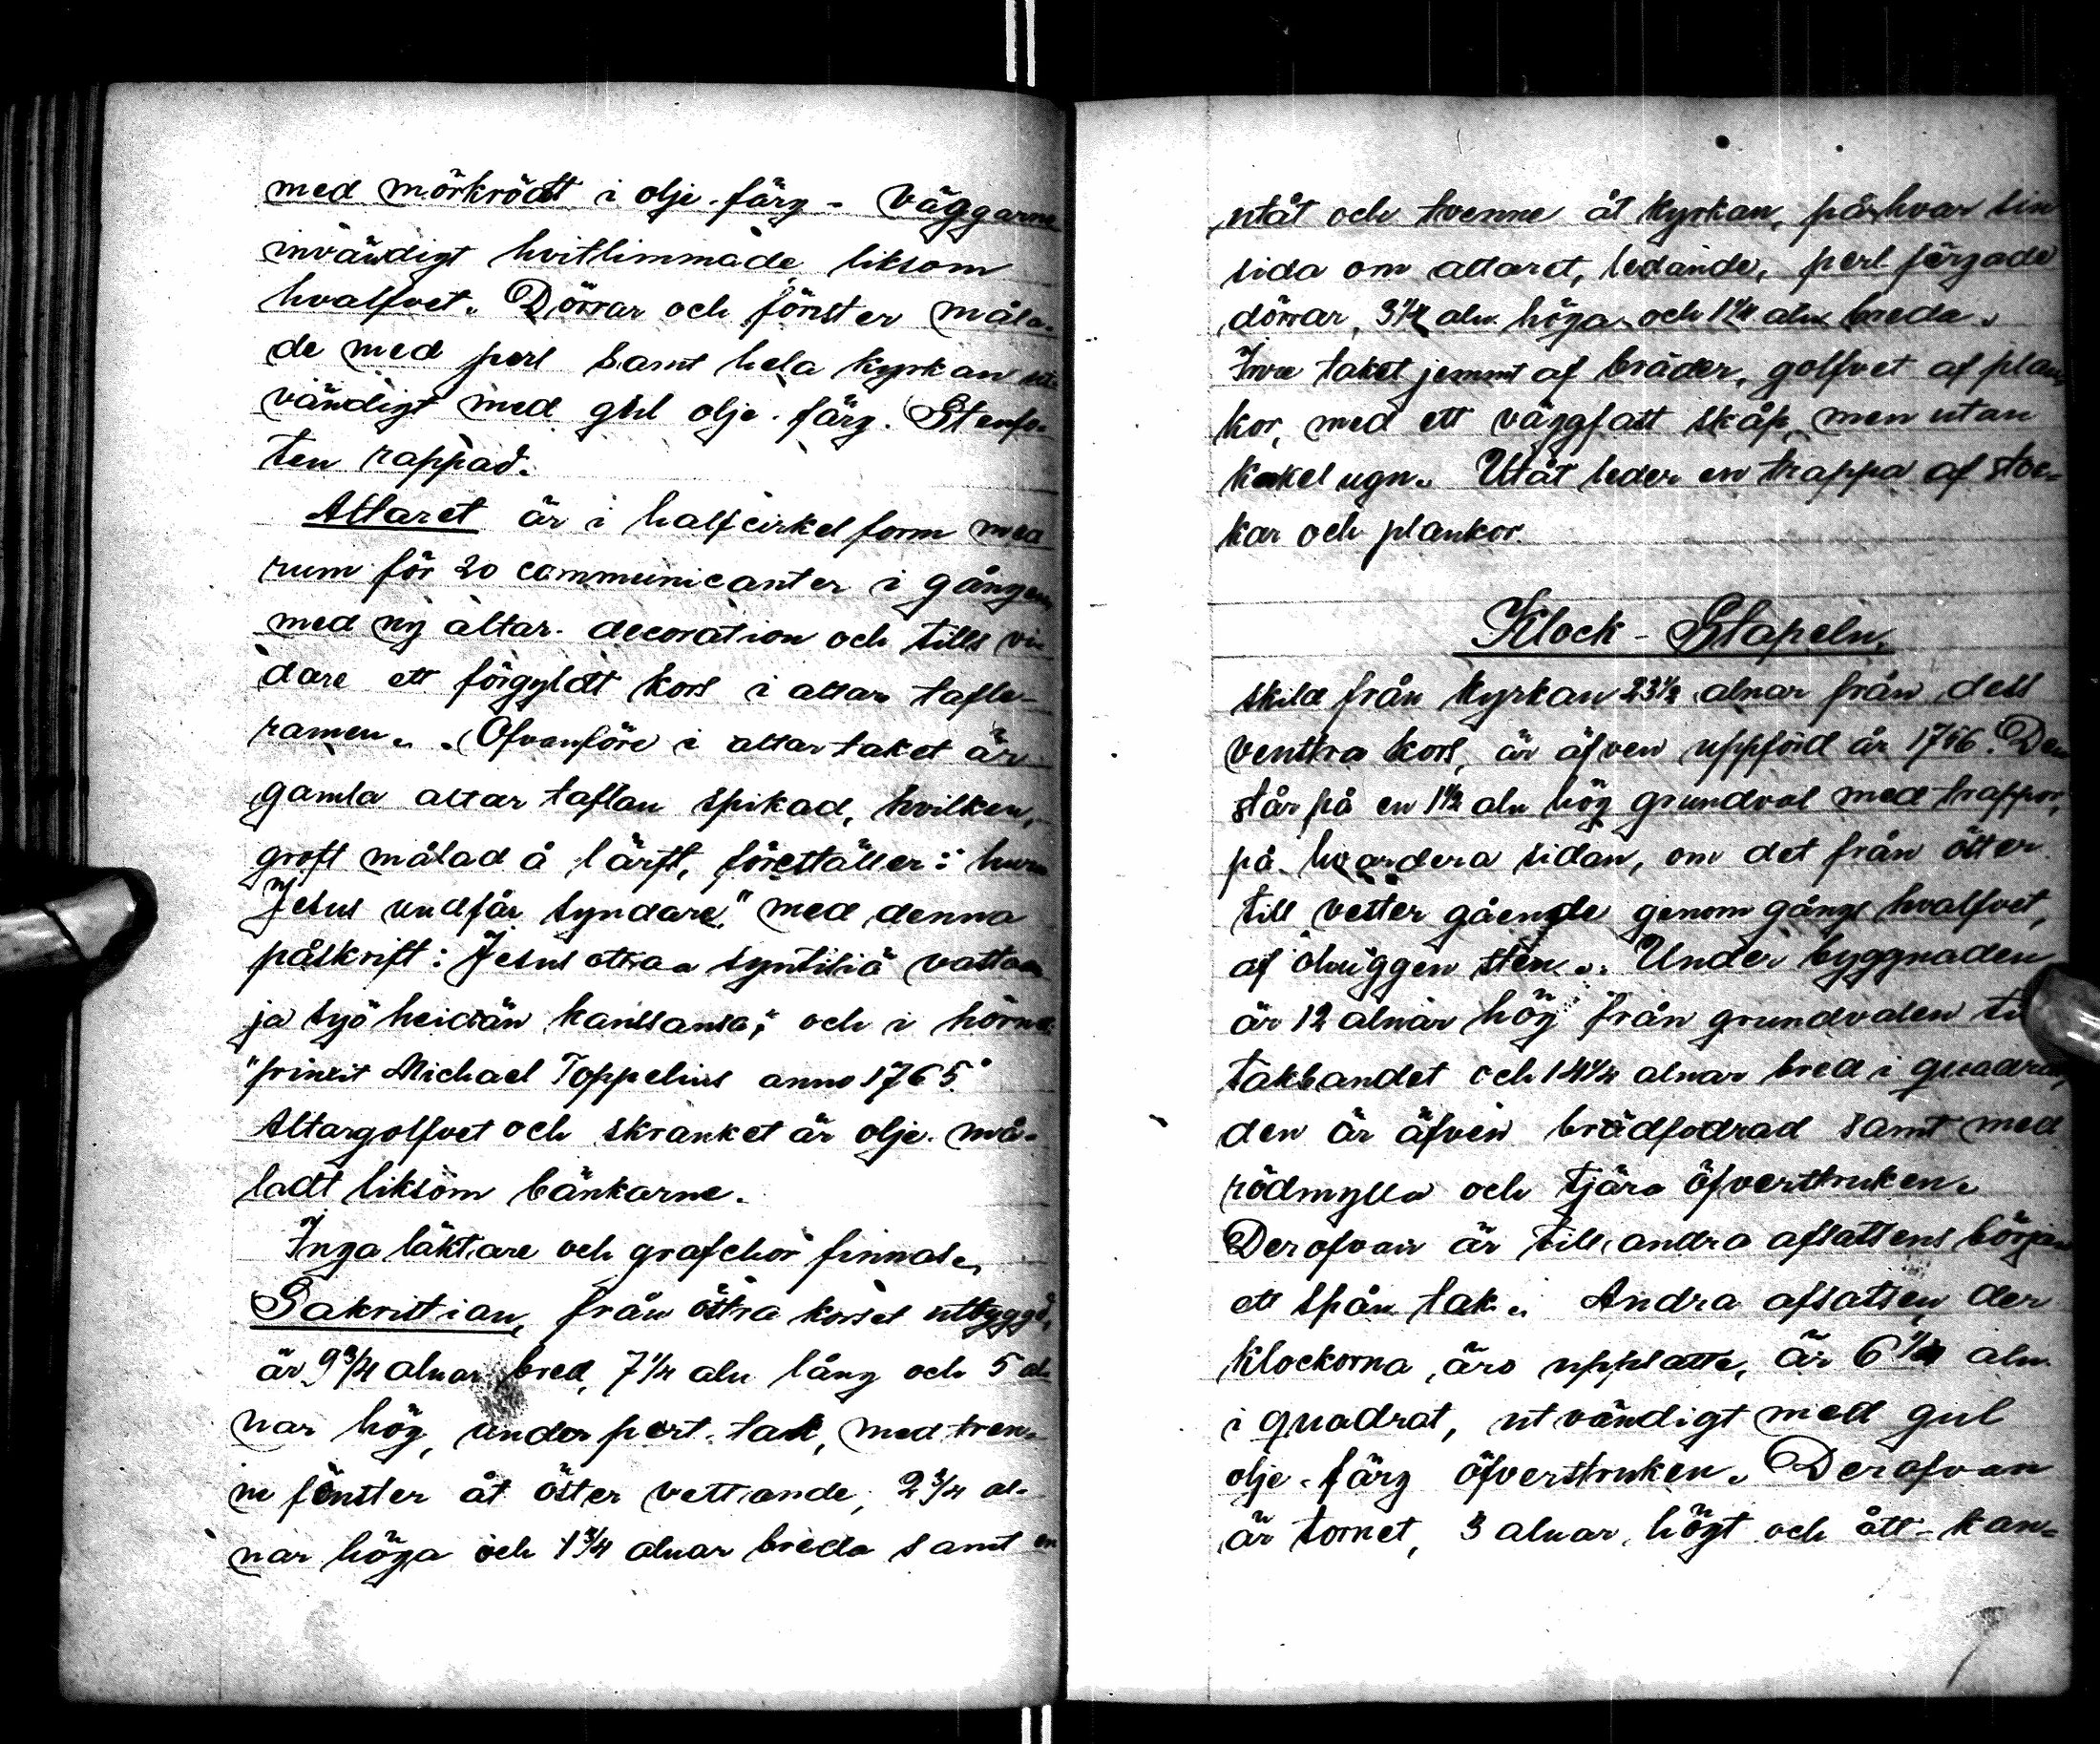 med mörkrödt i olje-färg - Väggarne
invändigt hvitlimmade liksom
hvalfvet. Dörrar och fönster måla-
de med perl samt hela kyrkan ut-
vändigt med gul olje-färg. Stenfo-
ten rappad.
Altaret är i halfcirkel form med
rum för 20 communicanter i gången
med ny altar-decoration och tills vi-
dare ett förgyldt kors i altar tafle-
ramen. Ofvanföre i altartaket är
gamla altar taflan spikad, hvilken,
groft målad å lärft, föreställer: "huru
Jesus undfår syndare" med denna
påskrift: Jesus ottaa syntisiä vastaan
ja syö heidän kanssansa; och i hörnet
"pinxit Michael Toppelius anno 1765."
Altargolfvet och skranket är olje-må-
ladt liksom bänkarne.
Inga läktare och grafchor finnas.
Sakristian, från östra korset utbyggd,
är 9 3/4 alnar bred, 7 1/4 aln lång och 5 al-
nar hög, under pert-tak, med tven-
ne fönster åt öster vettande, 2 3/4 al-
nar höga och 1 3/4 alnar breda samt en
utåt och tvenne åt kyrkan, på hvar sin
sida om altaret, ledande, perl-färgade
dörrar, 3 1/4 aln höga och 1 1/4 aln breda.
Inre taket jemnt af bräder, golfvet af plan-
kor, med ett väggfast skåp, men utan
kakelugn. Utåt leder en trappa af stoc-
kar och plankor.
Klock-Stapeln,
skild från kyrkan 23 1/2 alnar från dess
venstra kors, är äfven uppförd år 1766. Den
står på en 1 1/2 aln hög grundval med trappor,
på hvardera sidan, om det från öster
till vester gående genomgångs hvalfvet,
af ohuggen sten. Under byggnaden
är 12 alnar hög från grundvalen till
takbandet och 14 1/4 alnar bred i quadrat,
den är äfven brädfodrad samt med
rödmylla och tjära öfverstruken.
Derofvan är till andra afsattsens början
ett spån tak. Andra afsattsen, der
klockorna äro uppsatte, är 6 1/4 aln
i quadrat, utvändigt med gul
olje-färg öfverstruken. Derofvan
är tornet, 3 alnar högt och ått-kan-